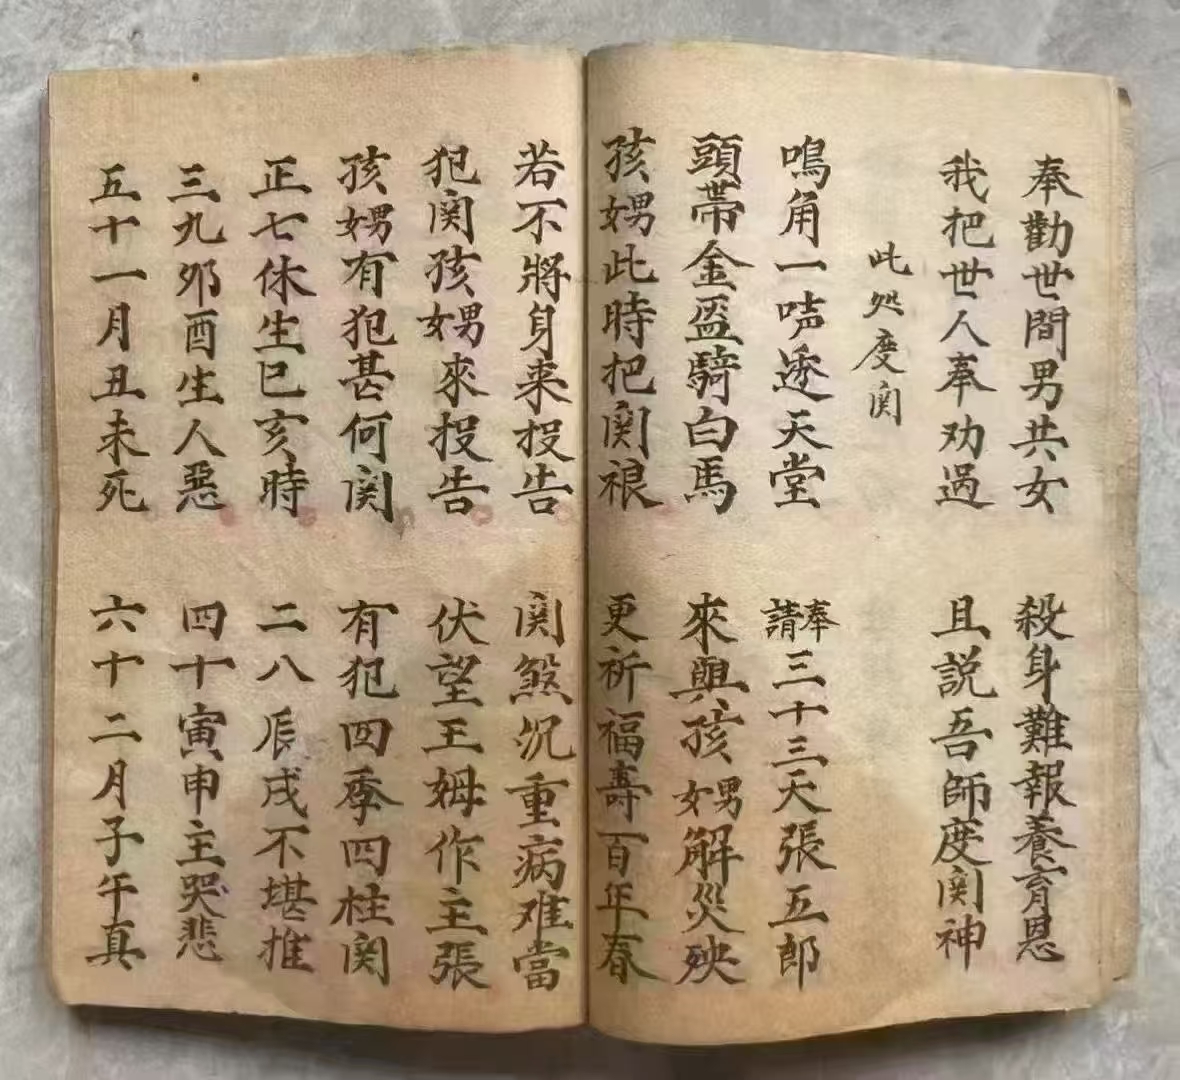 奉勸世間男共女 殺身難報養育恩
我把世人奉劝過 且説吾師度関神
此処度関
鳴角一声透天堂 奉請三十三天張五郎
頭帶金盔騎白馬 來與孩娚解災殃
孩娚此時把関裉 更祈福壽百年春
若不將身来投告 関煞沉重病难當
犯関孩娚來投告 伏望王姆作主張
孩娚有犯甚何関 有犯四季四柱関
正七休生巳亥時 二八辰戌不堪推
三九夘酉生人惡 四十寅申主哭悲
五十一月丑未死 六十二月子午真